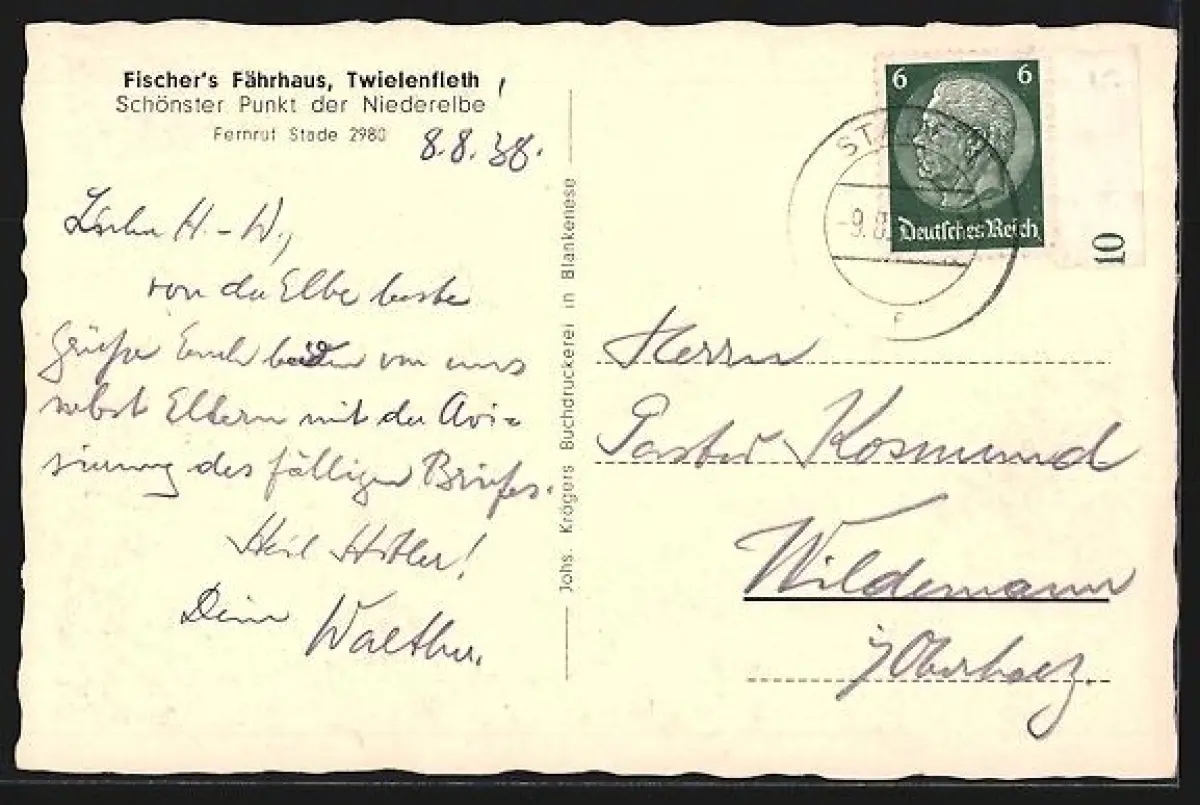 Fischer's Fährhaus, Twielenfleth
Schönster Punkt der Niederelbe !
Fernruf Stade 2980
8.8.38.
H.-W.,
von der Elbe beste
Grüße Euch beiden von uns
nebst Eltern mit der Avi-
sierung des fälligen Briefes.
Heil Hitler!
Dein Walther.
Johs. Krögers Buchdruckerei in Blankenese
6 6
Deutsches Reich
STA
-9.8
10
Herrn
Pastor Kosmund
Wildemann
Oberharz.